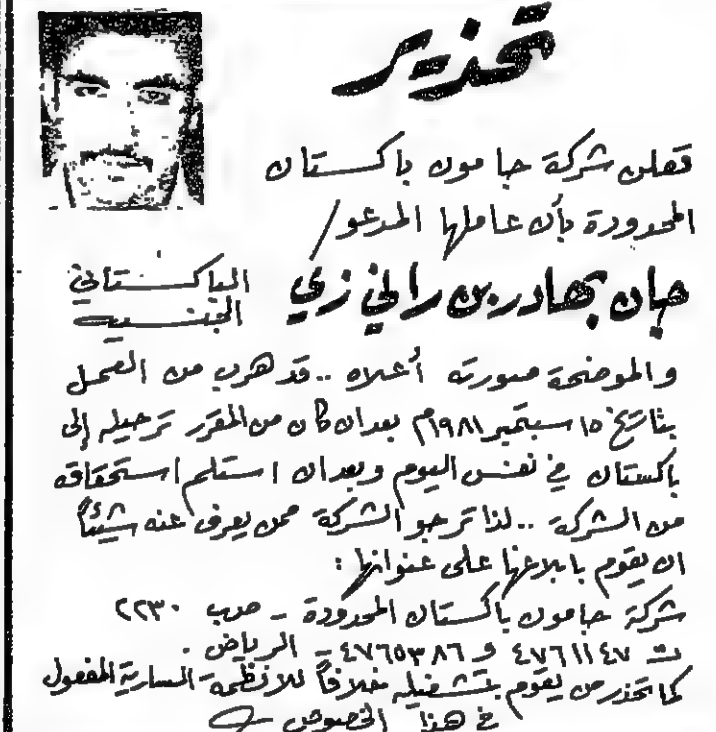 تحذير
تعلن شركة جامون باكستان
المحدودة بأن عاملها المدعو /
جان بهادر بن راني زي الباكستاني
الجنسيه
والموضحة صورته أعلاه .. قد هرب من العمل
بتاريخ ١٥ سبتمبر ١٩٨١م بعد ان كان من المقرر ترحيله إلى
باكستان في نفس اليوم وبعد ان استلم استحقاقه
من الشركة .. لذا ترجو الشركة ممن يعرف عنه شيئاً
ان يقوم بابلاغها على عنوانها :
شركة جامون باكستان المحدودة – صب ٢٢٣٠
ت ٤٧٦١١٤٧ و ٤٧٦٥٣٨٦ – الرياض .
كما تحذر من يقوم بتشغيله خلافاً للانظمة السارية المفعول
في هذا الخصوص